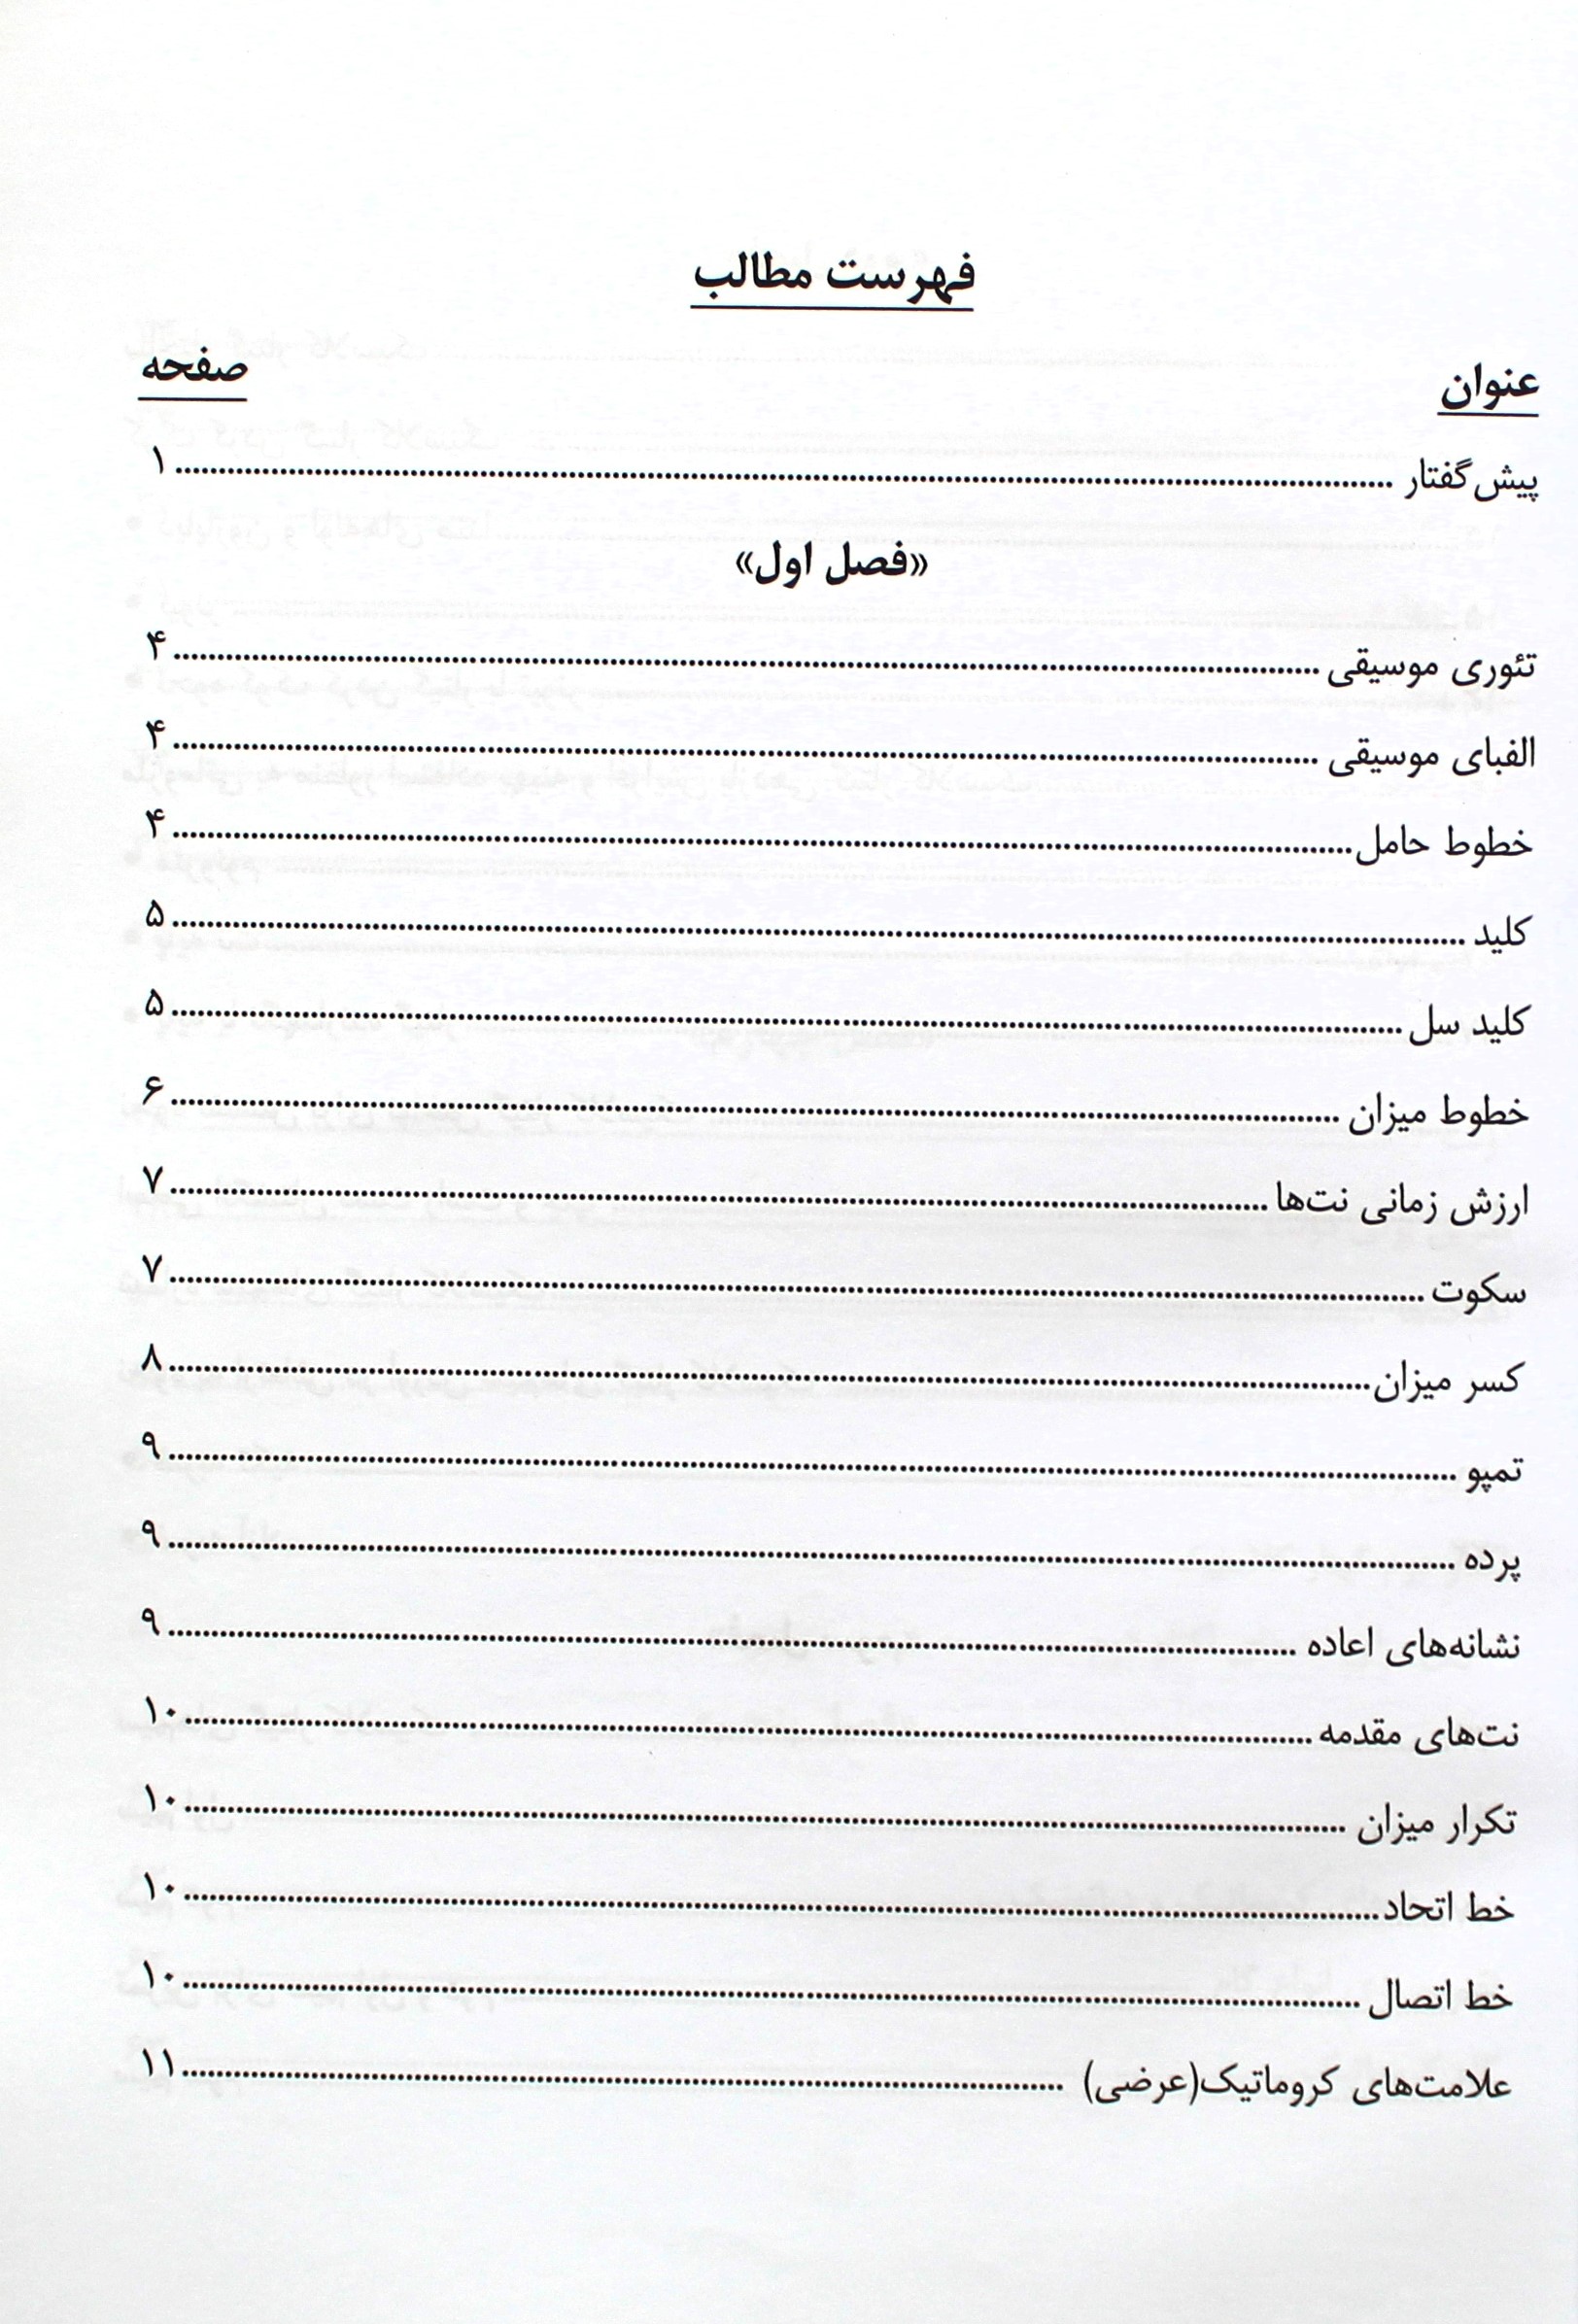 فهرست مطالب
عنوان صفحه
پیش‌گفتار ........ ۱
«فصل اول»
تئوری موسیقی ........ ۴
الفبای موسیقی ........ ۴
خطوط حامل ........ ۴
کلید ........ ۵
کلید سل ........ ۵
خطوط میزان ........ ۶
ارزش زمانی نت‌ها ........ ۷
سکوت ........ ۷
کسر میزان ........ ۸
تمپو ........ ۹
پرده ........ ۹
نشانه‌های اعاده ........ ۹
نت‌های مقدمه ........ ۱۰
تکرار میزان ........ ۱۰
خط اتحاد ........ ۱۰
خط اتصال ........ ۱۰
علامت‌های کروماتیک(عرضی) ........ ۱۱